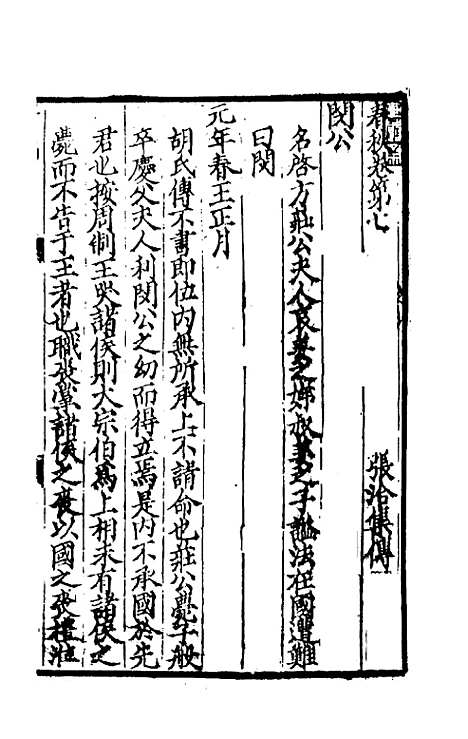 春秋卷第七
張洽集傳
閔公
名啓方莊公夫人哀姜之娣叔姜之子謚法在國遭難
曰閔
元年春王正月
胡氏傳不書即位内無所承上不請命也莊公薨子般
卒慶父夫人利閔公之幼而得立焉是内不承國於先
君也按周制王哭諸侯則大宗伯爲上相未有諸侯之
薨而不告于王者也職喪掌諸侯之喪以國之喪禮涖